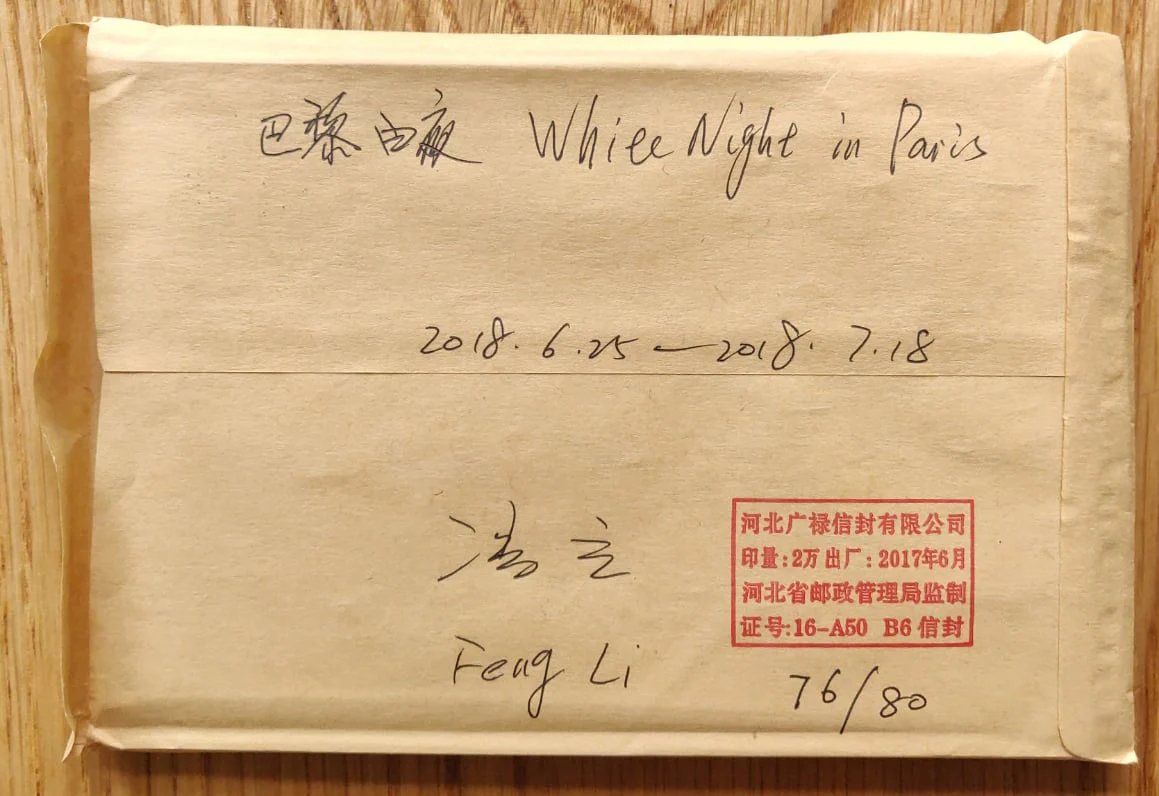 巴黎白夜 White Night in Paris
2018.6.25—2018.7.18
冯立
河北广禄信封有限公司
印量:2万 出厂:2017年6月
河北省邮政管理局监制
证号:16-A50 B6信封
Feng Li
76/80